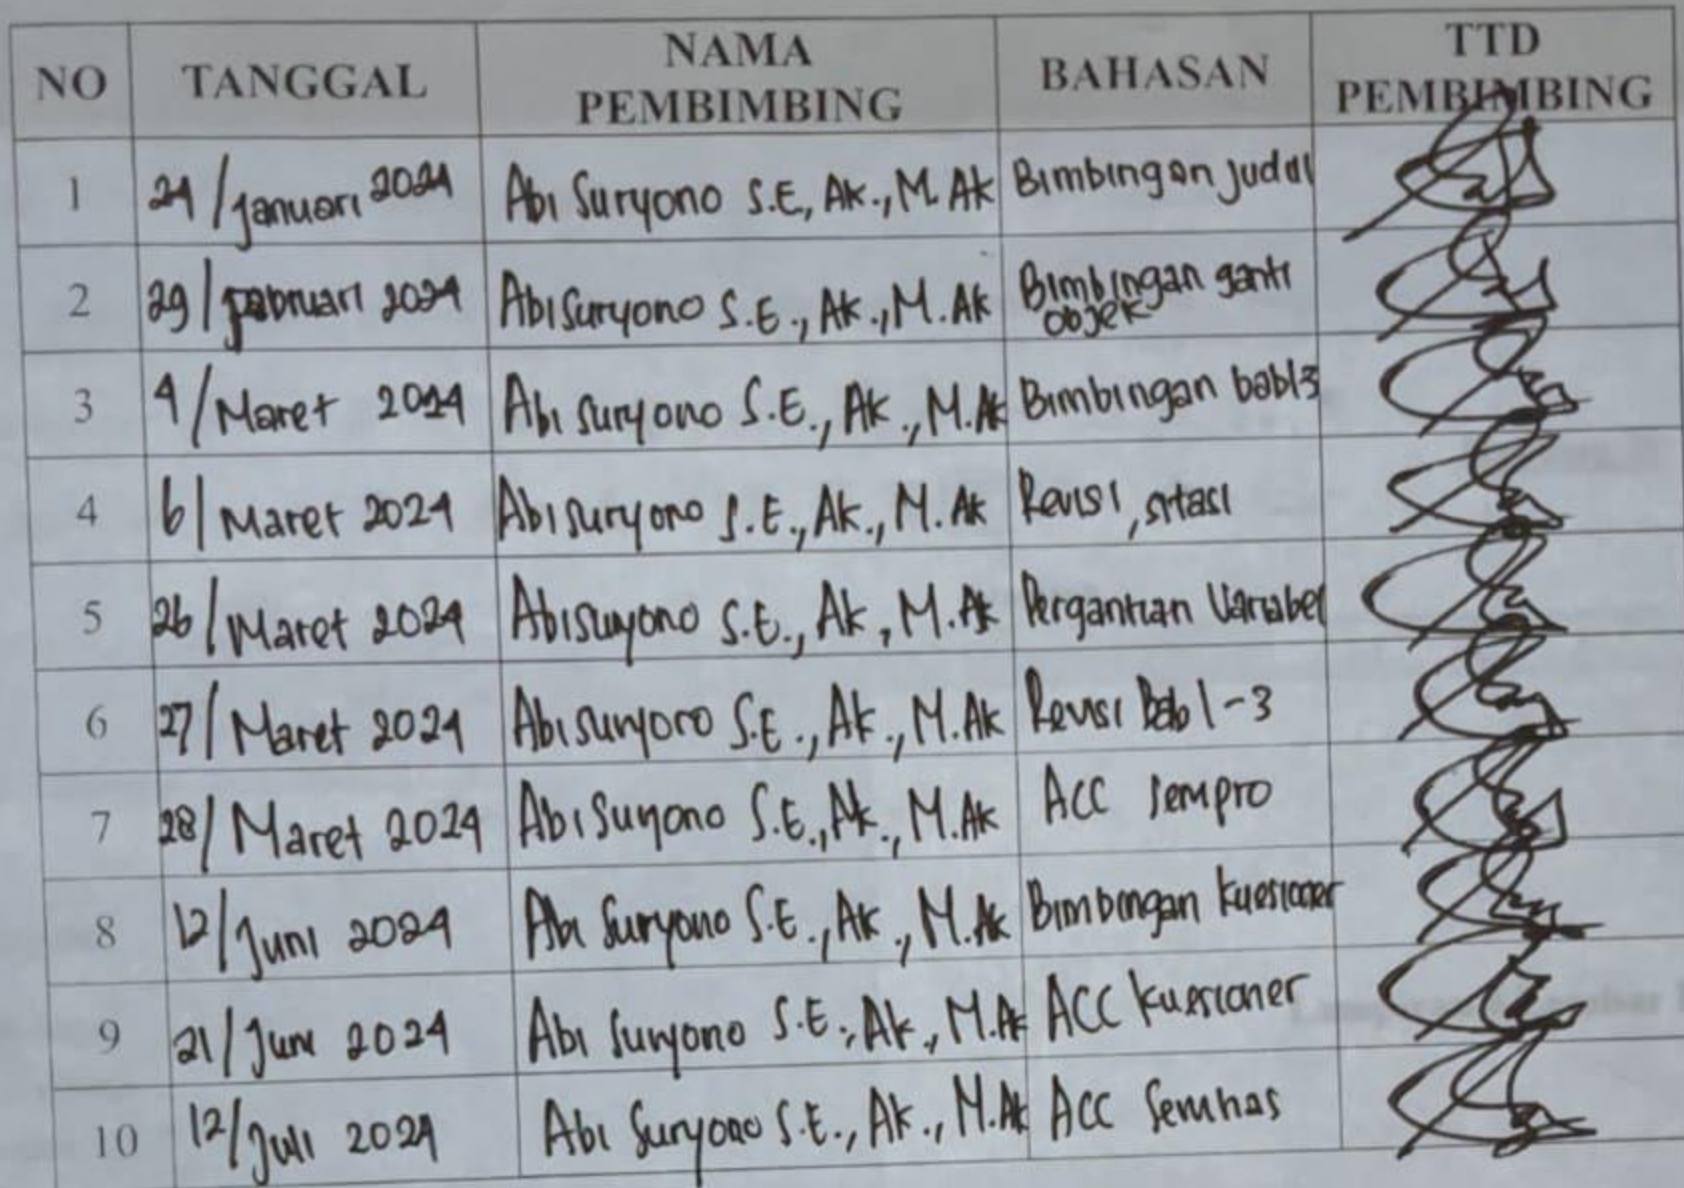 NO TANGGAL NAMA PEMBIMBING BAHASAN TTD PEMBIMBING
1 24/Januari 2024 Abi Suryono S.E, Ak., M. Ak Bimbingan judul
2 29/Februari 2024 Abi Suryono S.E., Ak., M. Ak Bimbingan ganti objek
3 4/Maret 2024 Abi Suryono S.E., Ak., M.Ak Bimbingan bab 1-3
4 6/Maret 2024 Abi Suryono S.E., Ak., M. Ak Revisi, sitasi
5 26/Maret 2024 Abi Suryono S.E., Ak, M.Ak Pergantian Variabel
6 27/Maret 2024 Abi Suryono S.E., Ak., M.Ak Revisi Bab 1-3
7 28/Maret 2024 Abi Suryono S.E., Ak., M.Ak ACC Sempro
8 12/Juni 2024 Abi Suryono S.E., Ak., M.Ak Bimbingan kuesioner
9 21/Juni 2024 Abi Suryono S.E., Ak., M.Ak ACC kuesioner
10 12/Juli 2024 Abi Suryono S.E., Ak., M.Ak ACC Semhas